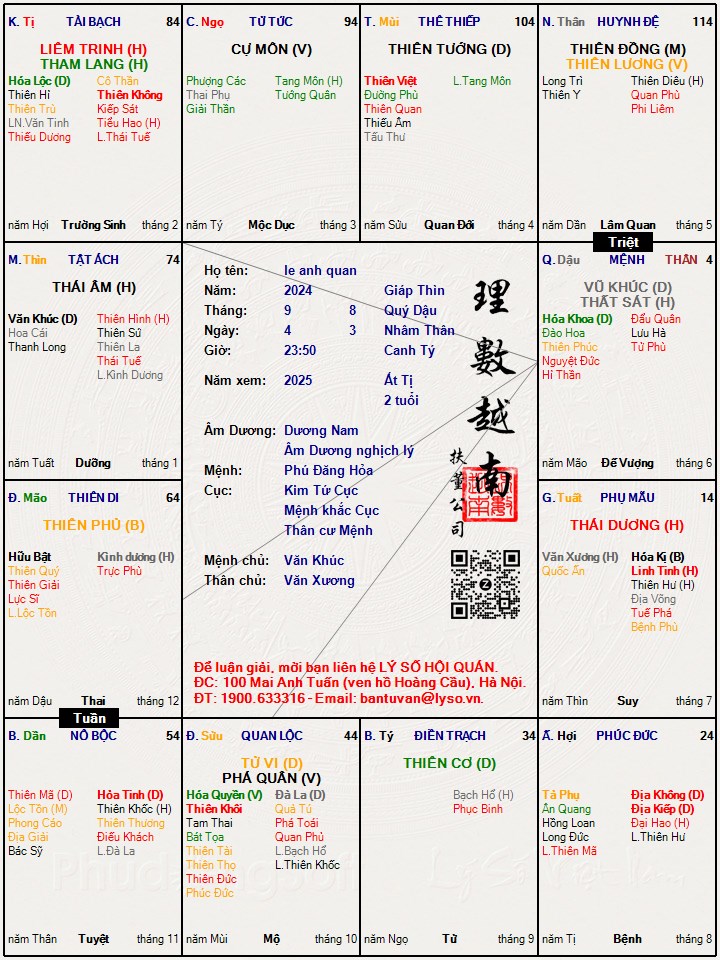 K. Tị TÀI BẠCH 84
LIÊM TRINH (H)
THAM LANG (H)
Hóa Lộc (D) Cô Thần
Thiên Hỉ Thiên Không
Thiên Trù Kiếp Sát
LN.Văn Tinh Tiểu Hao (H)
Thiếu Dương L.Thái Tuế
năm Hợi Trường Sinh tháng 2
C. Ngọ TỬ TỨC 94
CỰ MÔN (V)
Phượng Các Tang Môn (H)
Thai Phụ Tướng Quân
Giải Thần
năm Tý Mộc Dục tháng 3
T. Mùi THÊ THIẾP 104
THIÊN TƯỚNG (D)
Thiên Việt L.Tang Môn
Đường Phù
Thiên Quan
Thiếu Âm
Tấu Thư
năm Sửu Quan Đới tháng 4
N. Thân HUYNH ĐỆ 114
THIÊN ĐỒNG (M)
THIÊN LƯƠNG (V)
Long Trì Thiên Diêu (H)
Thiên Y Quan Phù
Phi Liêm
năm Dần Lâm Quan tháng 5
Triệt
M. Thìn TẬT ÁCH 74
THÁI ÂM (H)
Văn Khúc (D) Thiên Hình (H)
Hoa Cái Thiên Sứ
Thanh Long Thiên La
Thái Tuế
L.Kình Dương
năm Tuất Dưỡng tháng 1
Họ tên: le anh quan
Năm: 2024 Giáp Thìn
Tháng: 9 8 Quý Dậu
Ngày: 4 3 Nhâm Thân
Giờ: 23:50 Canh Tý
Năm xem: 2025 Ất Tị
2 tuổi
Âm Dương: Dương Nam
Âm Dương nghịch lý
Mệnh: Phú Đăng Hỏa
Cục: Kim Tứ Cục
Mệnh khắc Cục
Thân cư Mệnh
Mệnh chủ: Văn Khúc
Thân chủ: Văn Xương
理數越南
扶董公司
Để luận giải, mời bạn liên hệ LÝ SỐ HỘI QUÁN.
ĐC: 100 Mai Anh Tuấn (ven hồ Hoàng Cầu), Hà Nội.
ĐT: 1900.633316 - Email: bantuvan@lyso.vn.
Q. Dậu MỆNH THÂN 4
VŨ KHÚC (D)
THẤT SÁT (H)
Hóa Khoa (D) Đẩu Quân
Đào Hoa Lưu Hà
Thiên Phúc Tử Phù
Nguyệt Đức
Hỉ Thần
năm Mão Đế Vượng tháng 6
Đ. Mão THIÊN DI 64
THIÊN PHỦ (B)
Hữu Bật Kình dương (H)
Thiên Quý Trực Phù
Thiên Giải
Lực Sĩ
L.Lộc Tồn
năm Dậu Thai tháng 12
Tuần
G. Tuất PHỤ MẪU 14
THÁI DƯƠNG (H)
Văn Xương (H) Hóa Kị (B)
Quốc Ấn Linh Tinh (H)
Thiên Hư (H)
Địa Võng
Tuế Phá
Bệnh Phù
năm Thìn Suy tháng 7
B. Dần NÔ BỘC 54
Thiên Mã (D) Hỏa Tinh (D)
Lộc Tồn (M) Thiên Khốc (H)
Phong Cáo Thiên Thương
Địa Giải Điếu Khách
Bác Sỹ L.Đà La
năm Thân Tuyệt tháng 11
Đ. Sửu QUAN LỘC 44
TỬ VI (D)
PHÁ QUÂN (V)
Hóa Quyền (V) Đà La (D)
Thiên Khôi Quả Tú
Tam Thai Phá Toái
Bát Tọa Quan Phủ
Thiên Tài L.Bạch Hổ
Thiên Thọ L.Thiên Khốc
Thiên Đức
Phúc Đức
năm Mùi Mộ tháng 10
B. Tý ĐIỀN TRẠCH 34
THIÊN CƠ (D)
Bạch Hổ (H)
Phục Binh
năm Ngọ Tử tháng 9
Ấ. Hợi PHÚC ĐỨC 24
Tả Phụ Địa Không (D)
Ân Quang Địa Kiếp (D)
Hồng Loan Đại Hao (H)
Long Đức L.Thiên Hư
L.Thiên Mã
năm Tị Bệnh tháng 8